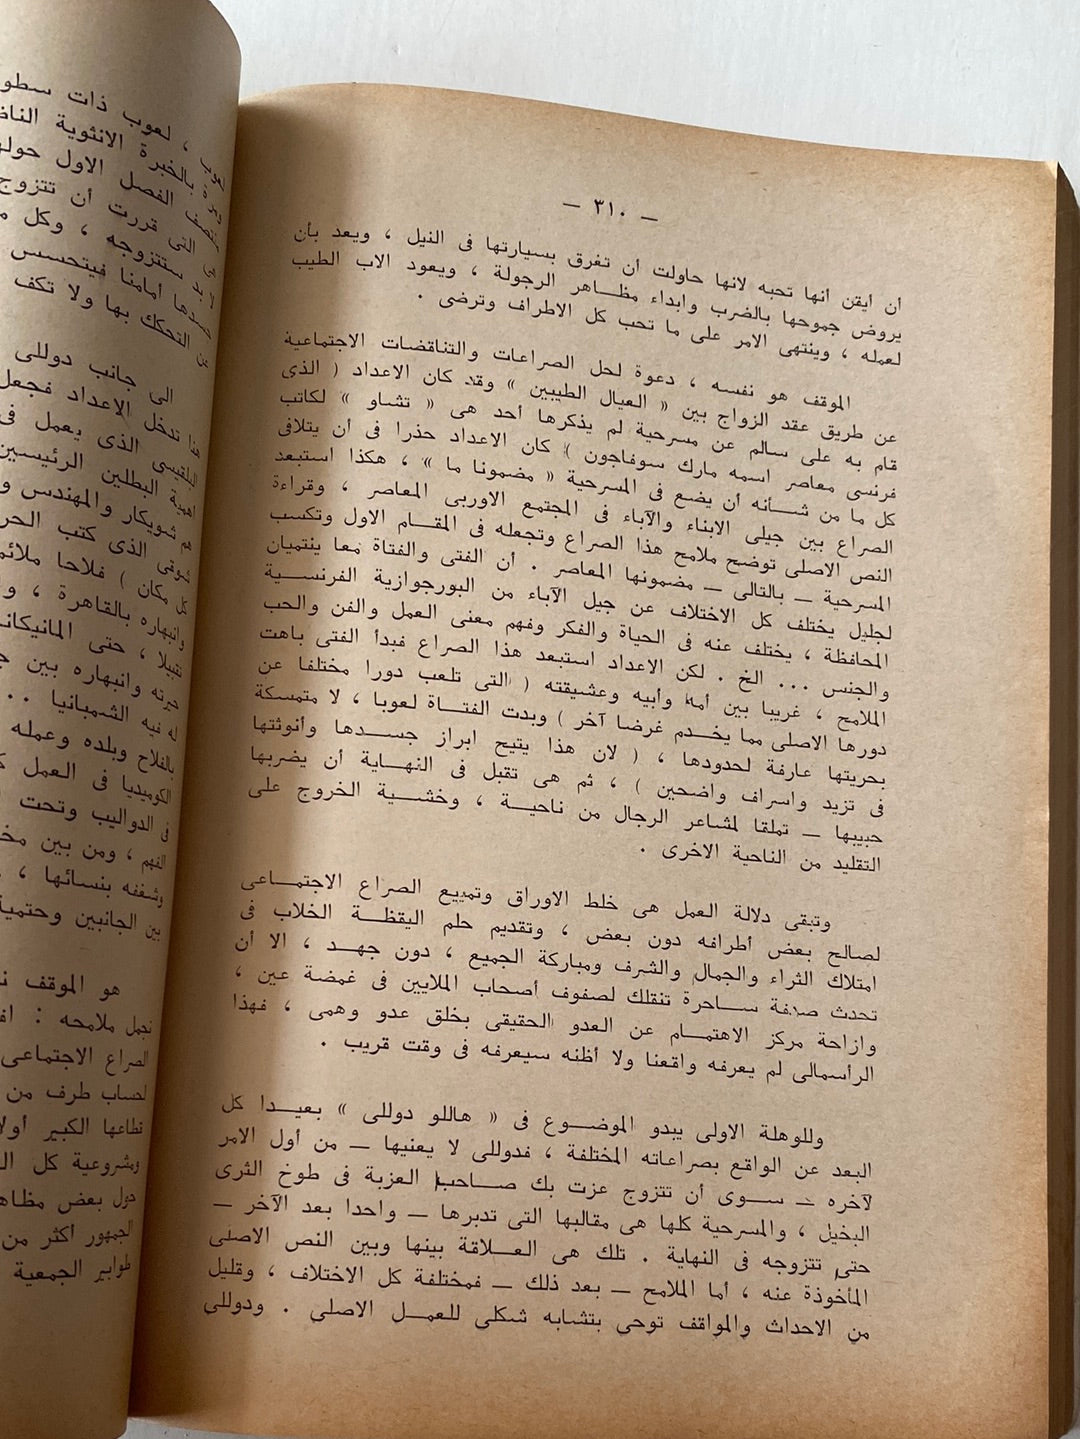 — ٣١٠ —
أن أيقن أنها تحبه لانها حاولت أن تغرق بسيارتها فى النيل ، ويعد بأن
يروض جموحها بالضرب وابداء مظاهر الرجولة ، ويعود الاب الطيب
لعمله ، وينتهى الامر على ما تحب كل الاطراف وترضى .
الموقف هو نفسه ، دعوة لحل الصراعات والتناقضات الاجتماعية
عن طريق عقد الزواج بين « العيال الطيبين » وقد كان الاعداد ( الذى
قام به على سالم عن مسرحية لم يذكرها أحد هى « تشاو » لكاتب
فرنسى معاصر اسمه مارك سوفاجون ) كان الاعداد حذرا فى أن يتلافى
كل ما من شأنه أن يضع فى المسرحية « مضمونا ما » ، هكذا استبعد
الصراع بين جيلى الابناء والآباء فى المجتمع الاوربى المعاصر ، وقراءة
النص الاصلى توضح ملامح هذا الصراع وتجعله فى المقام الاول وتكسب
المسرحية — بالتالى — مضمونها المعاصر . أن الفتى والفتاة معا ينتميان
لجليل يختلف كل الاختلاف عن جيل الآباء من البورجوازية الفرنسية
المحافظة ، يختلف عنه فى الحياة والفكر وفهم معنى العمل والفن والحب
والجنس ... الخ . لكن الاعداد استبعد هذا الصراع فبدأ الفتى باهت
الملامح ، غريبا بين أمه وأبيه وعشيقته ( التى تلعب دورا مختلفا عن
دورها الاصلى مما يخدم غرضا آخر ) وبدت الفتاة لعوبا ، لا متمسكة
بحريتها عارفة لحدودها ، ( لان هذا يتيح ابراز جسدها وأنوثتها
فى تزيد واسراف واضحين ) ، ثم هى تقبل فى النهاية أن يضربها
حبيبها — تملقا لمشاعر الرجال من ناحية ، وخشية الخروج على
التقليد من الناحية الاخرى .
وتبقى دلالة العمل هى خلط الاوراق وتمييع الصراع الاجتماعى
لصالح بعض أطرافه دون بعض ، وتقديم حلم اليقظة الخلاب فى
امتلاك الثراء والجمال والشرف ومباركة الجميع ، دون جهد ، الا أن
تحدث صدفة ساحرة تنقلك لصفوف أصحاب الملايين فى غمضة عين ،
وازاحة مركز الاهتمام عن العدو الحقيقى بخلق عدو وهمى ، فهذا
الرأسمالى لم يعرفه واقعنا ولا أظنه سيعرفه فى وقت قريب .
وللوهلة الاولى يبدو الموضوع فى « هاللو دوللى » بعيدا كل
البعد عن الواقع بصراعاته المختلفة ، فدوللى لا يعنيها — من أول الامر
لآخره — سوى أن تتزوج عزت بك صاحب العزبة فى طوخ الثرى
البخيل ، والمسرحية كلها هى مقالبها التى تدبرها — واحدا بعد الآخر —
حتى تتزوجه فى النهاية . تلك هى العلاقة بينها وبين النص الاصلى
المأخوذة عنه ، أما الملامح — بعد ذلك — فمختلفة كل الاختلاف ، وقليل
من الاحداث والمواقف توحى بتشابه شكلى للعمل الاصلى . ودوللى
لعوب ، لعوب ذات سطو
بالخبرة الانثوية
الفصل الاول
التى قررت أن تتزوج
ستتزوجه ، وكل
أمامنا فيتحسس
التحكك بها ولا تكف
الى جانب دوللى
تدخل الاعداد فجعل
الذى يعمل فى
البطلين الرئيسين
شويكار والمهندس و
شوقى الذى كتب
كل مكان ) فلاحا
وانبهاره بالقاهرة ،
حتى المانيكان
حيرته وانبهاره بين
له فيه الشمبانيا ..
بالفلاح وبلده وعمله
الكوميديا فى العمل
فى الدواليب وتحت
الفهم ، ومن بين
وشغفه بنسائها ،
بين الجانبين وحتمية
هو الموقف
نجمل ملامحه :
الصراع الاجتماعى
لحساب طرف من
قطاعها الكبير
ومشروعية كل
حول بعض
الجمهور أكثر من
طوابير الجمعية